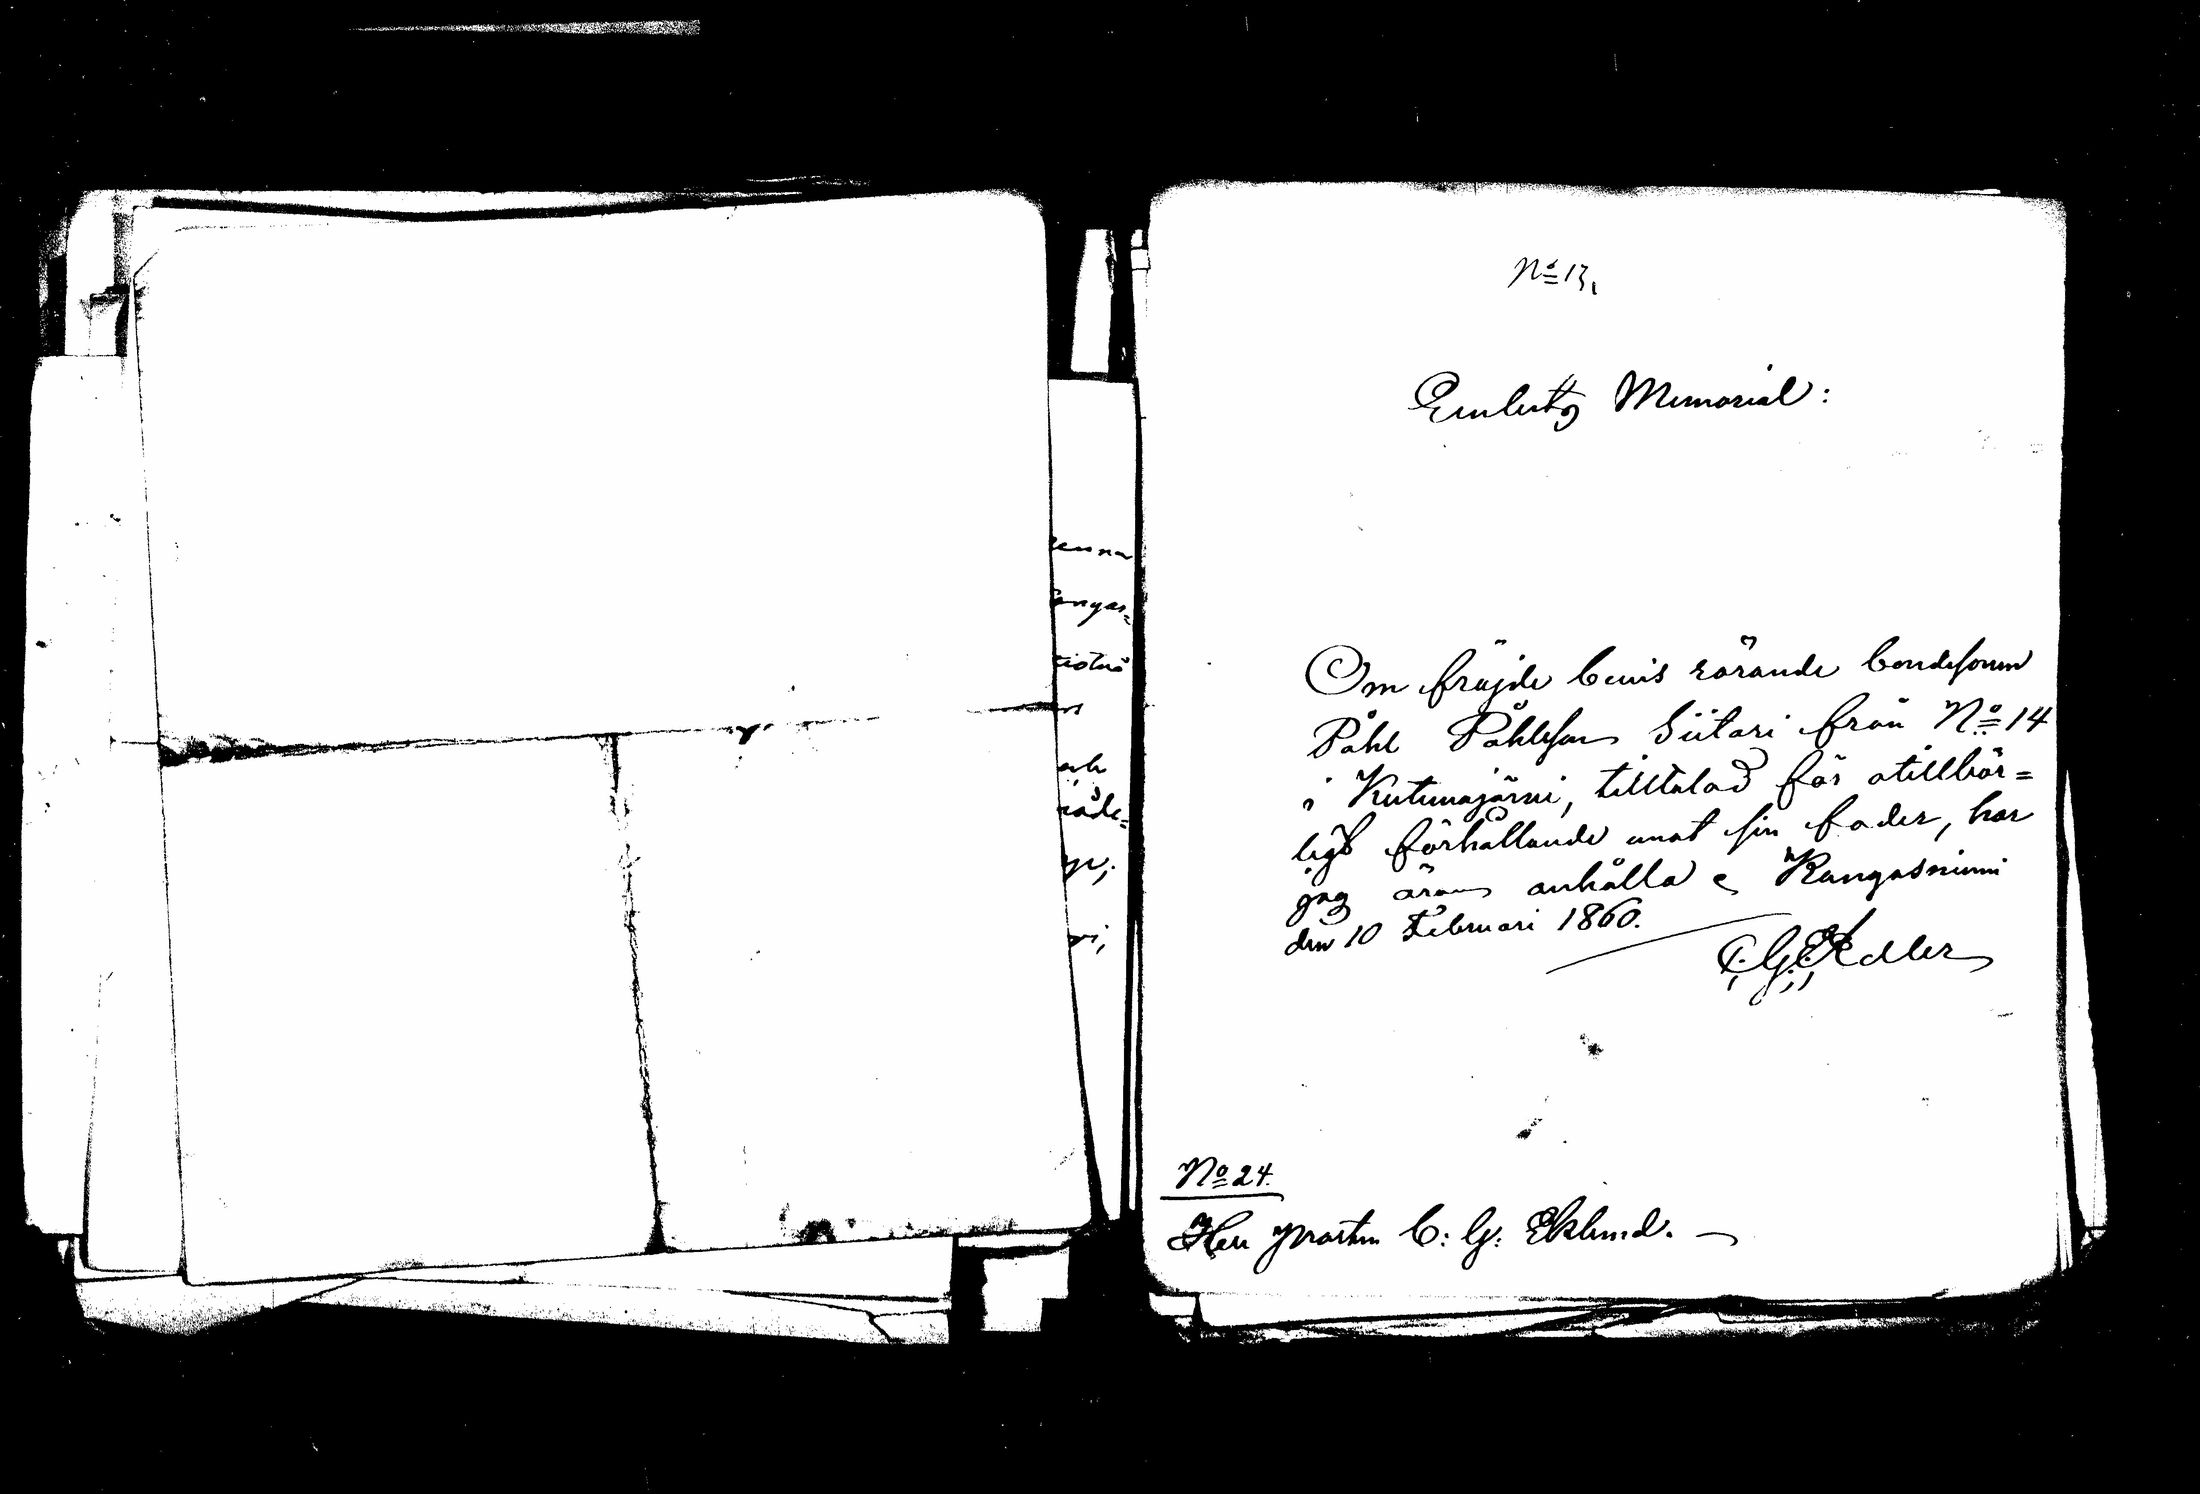 No 13,
Embets Memorial:
Om fräjde bevis rörande bondesonen
Påhl Påhlson Siitari från No 14
i Kutumajärvi, tilltalad för otillbör=
ligt förhållande mot sin fader, har
jag äran anhålla Kangasniemi
den 10 Februari 1860.
Adler
No 24.
Herr Prosten C: G: Eklund.